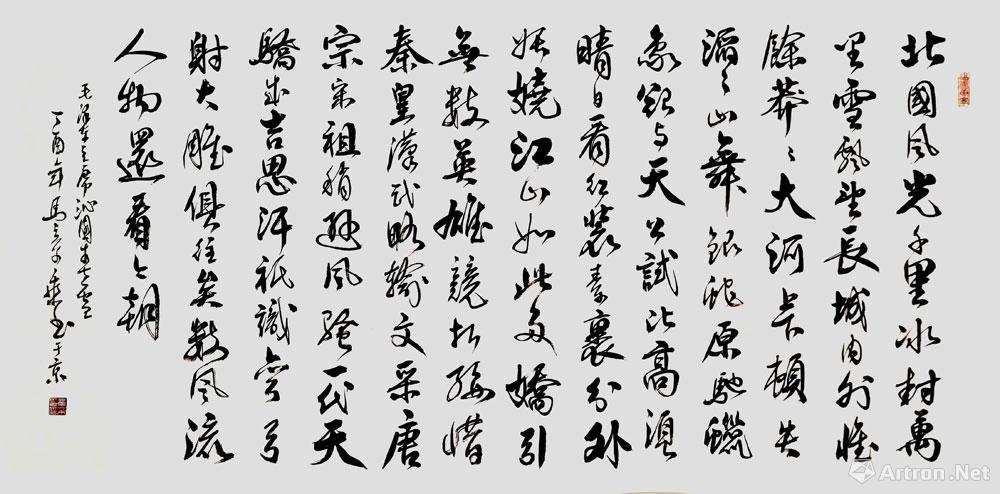 北國風光千里冰封萬
里雪飄望長城內外惟
餘莽々大河上下頓失
滔々山舞銀蛇原馳蠟
象欲与天公試比高須
晴日看紅裝素裹分外
妖嬈江山如此多嬌引
無數英雄競折腰惜
秦皇漢武略輸文采唐
宗宋祖稍遜風騷一代天
驕成吉思汗祇識彎弓
射大雕俱往矣數風流
人物還看今朝
毛澤東主席沁園春雪
丁酉年馬書于京
Artron.Net